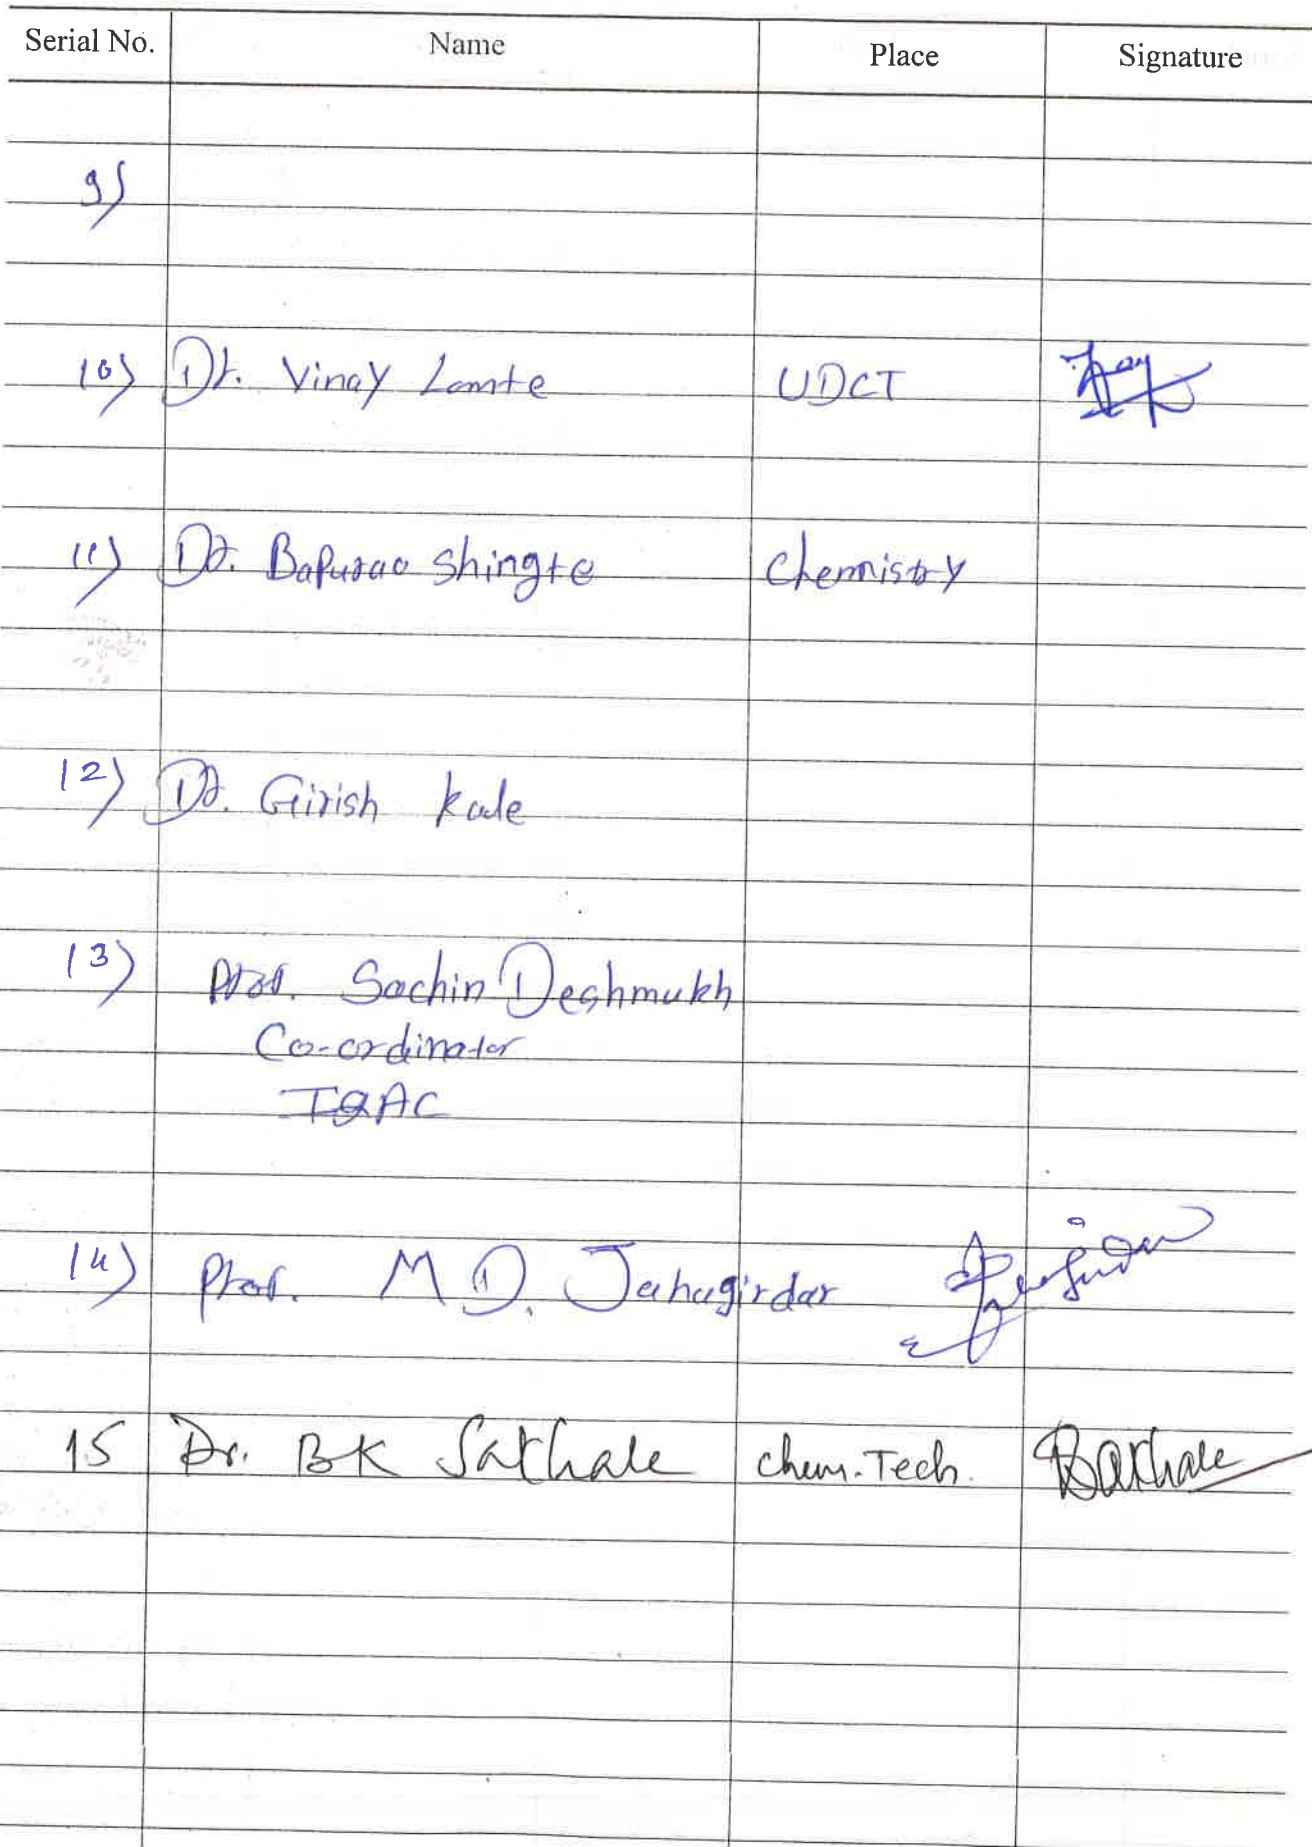 Serial No. Name Place Signature
9)
10) Dr. Vinay Lamte UDCT
11) Dr. Bapurao Shingte Chemistry
12) Dr. Girish Kale
13) Prof. Sachin Deshmukh
Co-ordinator
IQAC
14) Prof. M D. Jahagirdar
15 Dr. BK Sathale chem. Tech.